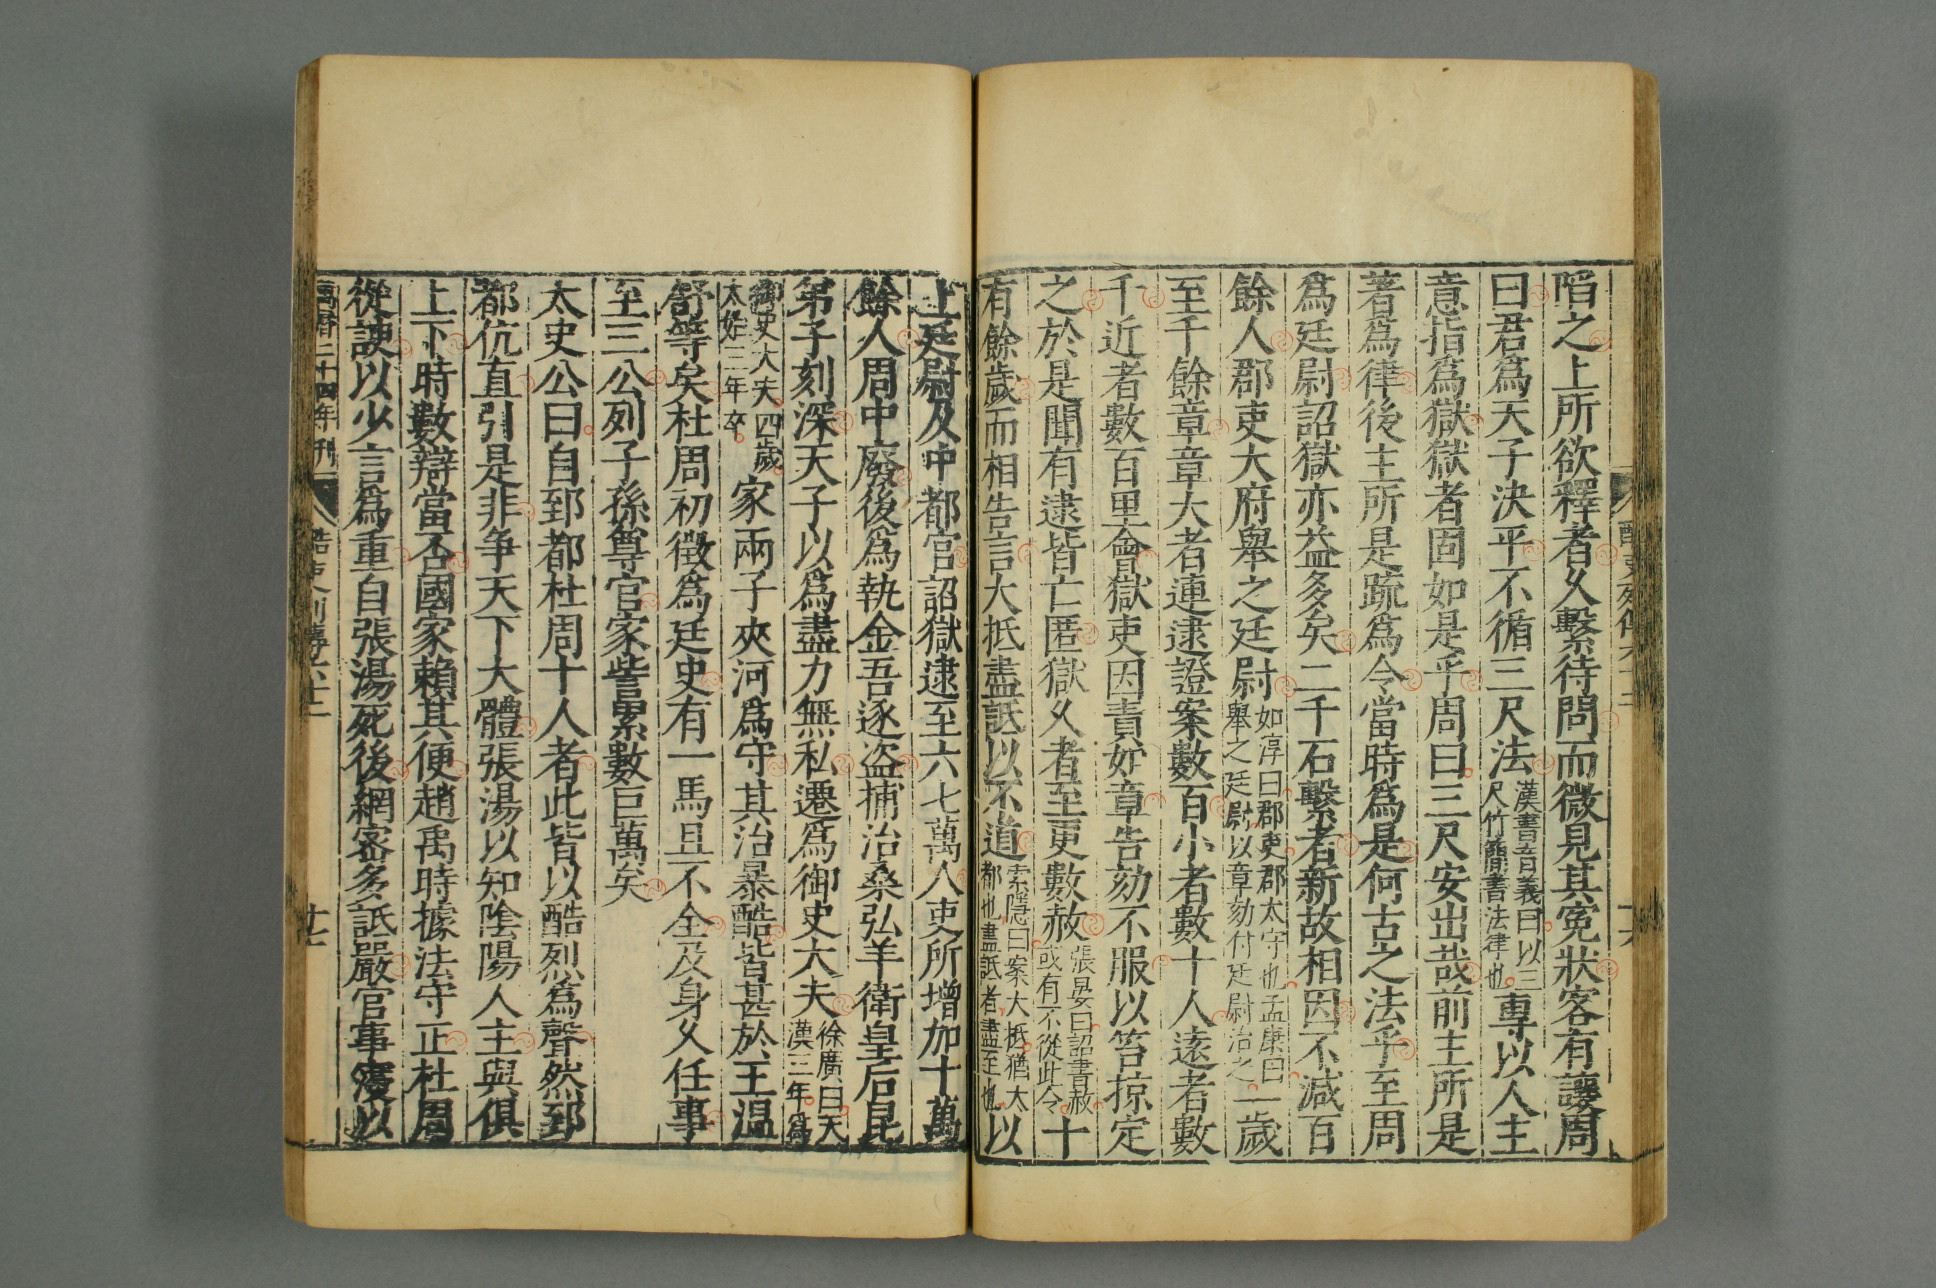 陷之上所欲釋者久繫待問而微見其寃狀客有讓周
曰君爲天子決平不循三尺法漢書音義曰以三尺竹簡書法律也專以人主
意指爲獄獄者固如是乎周曰三尺安出哉前主所是
著爲律後主所是疏爲令當時爲是何古之法乎至周
爲廷尉詔獄亦益多矣二千石繫者新故相因不減百
餘人郡吏大府舉之廷尉如淳曰郡吏郡太守也孟康曰舉之廷尉以章劾付廷尉治之一歲
至千餘章章大者連逮證案數百小者數十人遠者數
千近者數百里會獄吏因責如章告劾不服以笞掠定
之於是聞有逮皆亡匿獄久者至更數赦張晏曰詔書赦或有不從此令十
有餘歲而相告言大抵盡詆以不道索隱曰案大抵猶大都也盡詆者盡至也以
上廷尉及中都官詔獄逮至六七萬人吏所增加十萬
餘人周中廢後爲執金吾逐盗捕治桑弘羊衛皇后昆
弟子刻深天子以爲盡力無私遷爲御史大夫徐廣曰天漢三年爲
御史大夫四歲太始三年卒家兩子夾河爲守其治暴酷皆甚於王温
舒等矣杜周初徵爲廷史有一馬且不全及身久任事
至三公列子孫尊官家訾累數巨萬矣
太史公曰自郅都杜周十人者此皆以酷烈爲聲然郅
都伉直引是非争天下大體張湯以知陰陽人主與俱
上下時數辯當否國家賴其便趙禹時據法守正杜周
從諛以少言爲重自張湯死後網密多詆嚴官事寖以
萬曆二十四年刊
酷吏列傳六十二
十七